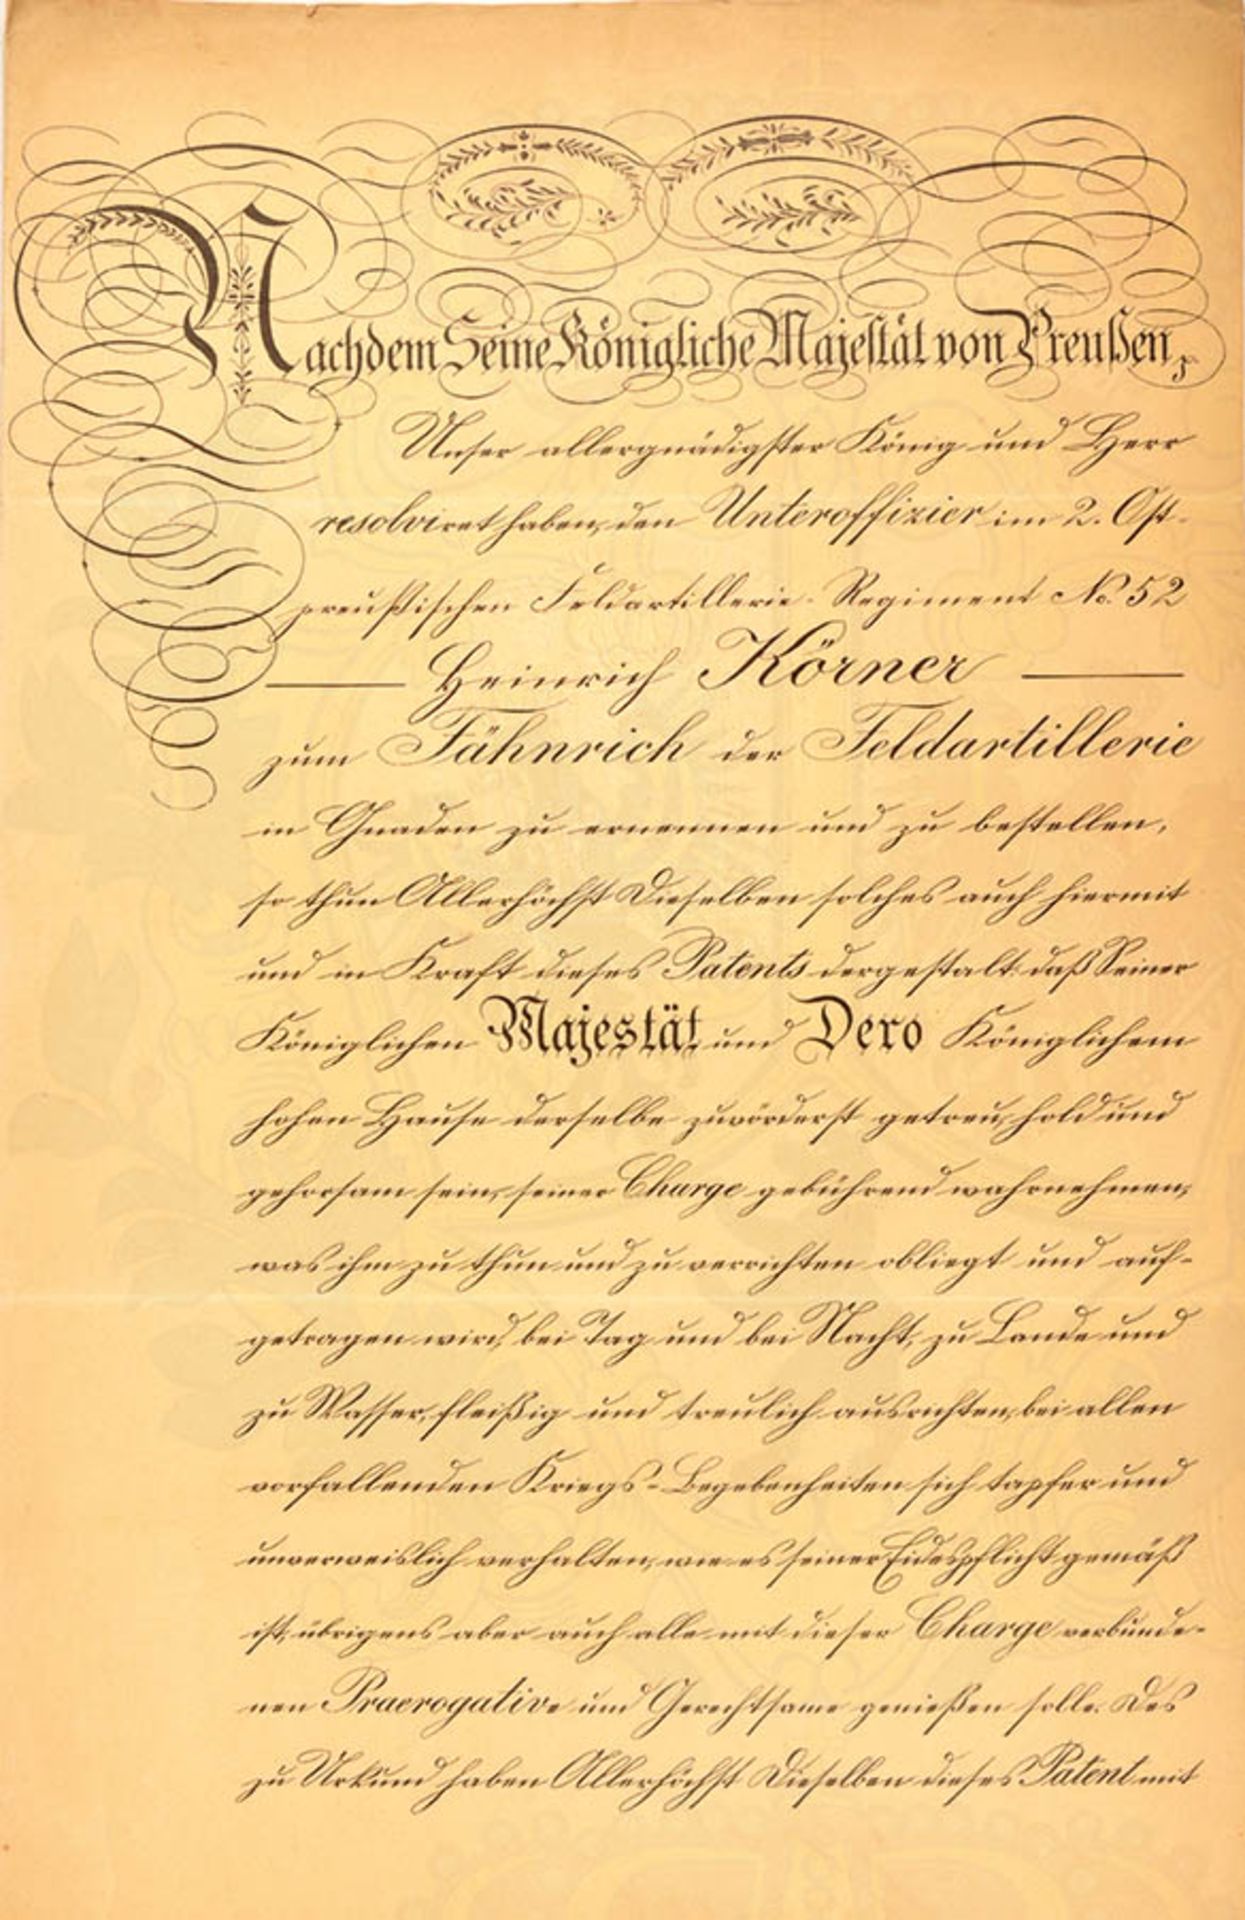 Nachdem Seine Königliche Majestät von Preußen,
Unser allergnädigster König und Herr
resolviret haben, den Unteroffizier im 2. Ost-
preußischen Feldartillerie-Regiment No. 52
Heinrich Körner
zum Fähnrich der Feldartillerie
in Gnaden zu ernennen und zu bestellen,
so thun Allerhöchst Dieselben solches auch hiermit
und in Kraft dieses Patents dergestalt: daß Seiner
Königlichen Majestät und Dero Königlichem
hohen Hause derselbe zuvörderst getreu, hold und
gehorsam sein, seiner Charge gebührend wahrnehmen,
was ihm zu thun und zu verrichten obliegt und auf-
getragen wird, bei Tag und bei Nacht, zu Lande und
zu Wasser, fleißig und treulich ausrichten, bei allen
vorfallenden Kriegs-Begebenheiten sich tapfer und
unverweislich verhalten, wie es seiner Eidespflicht gemäß
ist, übrigens aber auch alle mit dieser Charge verbunde-
nen Praerogative und Gerechtsame genießen solle. Des
zu Urkund haben Allerhöchst Dieselben dieses Patent mit